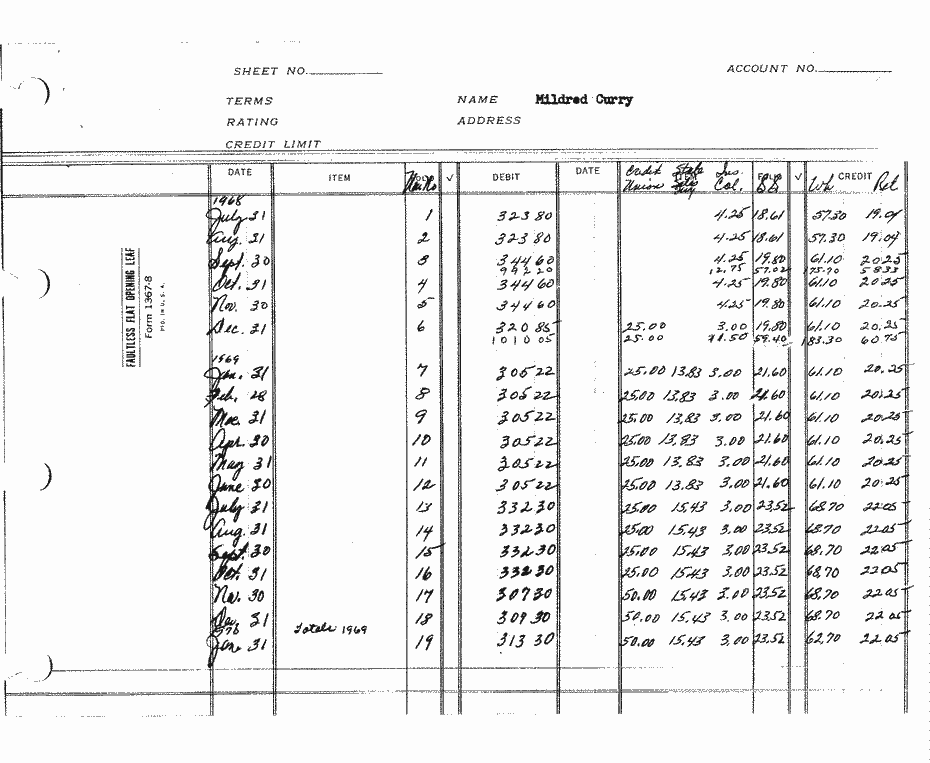 SHEET NO.
ACCOUNT NO.
TERMS
NAME Mildred Curry
RATING
ADDRESS
CREDIT LIMIT
DATE ITEM FOLIO ✓ DEBIT DATE ITEM FOLIO ✓ CREDIT
Credit Union State Ins. Col. Wh Ret
1968
July 31 1 323 80 4.25 18.61 57.30 19.04
Aug. 31 2 323 80 4.25 18.61 57.30 19.04
Sept. 30 3 344 60 4.25 19.80 61.10 20.25
992 20 12.75 57.02 175.70 58 33
Oct. 31 4 344 60 4.25 19.80 61.10 20.25
Nov. 30 5 344 60 4.25 19.80 61.10 20.25
Dec. 31 6 320 85 25.00 3.00 19.80 61.10 20.25
1010 05 25.00 11.50 59.40 183.30 60 75
1969
Jan. 31 7 305 22 25.00 13.83 3.00 21.60 61.10 20.25
Feb. 28 8 305 22 25.00 13.83 3.00 21.60 61.10 20.25
Mar. 31 9 305 22 25.00 13.83 3.00 21.60 61.10 20.25
Apr. 30 10 305 22 25.00 13.83 3.00 21.60 61.10 20.25
May 31 11 305 22 25.00 13.83 3.00 21.60 61.10 20.25
June 30 12 305 22 25.00 13.83 3.00 21.60 61.10 20.25
July 31 13 332 30 25.00 15.43 3.00 23.52 68.70 22.05
Aug. 31 14 332 30 25.00 15.43 3.00 23.52 68.70 22.05
Sept. 30 15 332 30 25.00 15.43 3.00 23.52 68.70 22.05
Oct. 31 16 332 30 25.00 15.43 3.00 23.52 68.70 22.05
Nov. 30 17 307 30 50.00 15.43 3.00 23.52 68.70 22.05
Dec. 31 18 309 30 50.00 15.43 3.00 23.52 68.70 22.05
Totals 1969
Jan. 31 19 313 30 50.00 15.43 3.00 23.52 62.70 22.05
FAULTLESS FLAT OPENING LEAF
Form 1367-8
MFD. IN U. S. A.